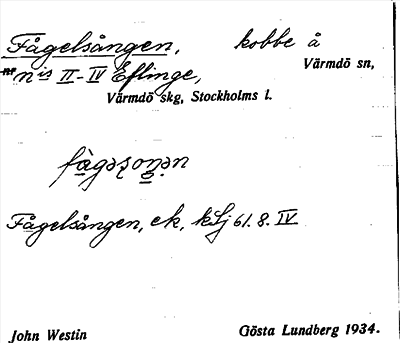 Fågelsången, kobbe å
Värmdö sn,
nis II-IV Eflinge,
Värmdö skg, Stockholms l.
Fågelsången, ek, 61.8. IV
John Westin Gösta Lundberg 1934.